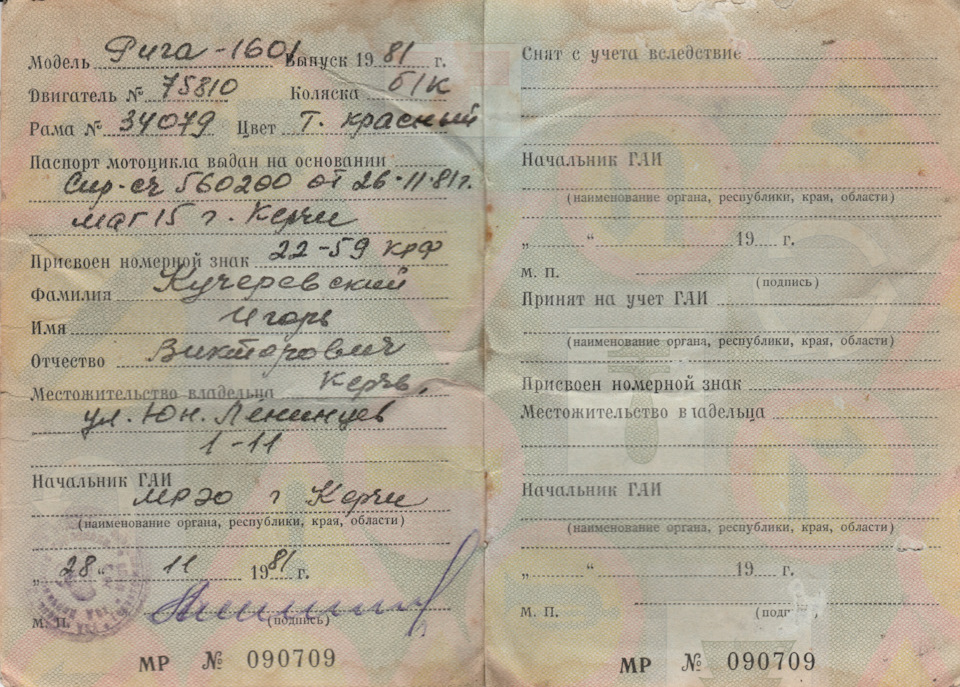 Модель Рига-1601 Выпуск 1981 г.
Двигатель № 75810 Коляска б/к
Рама № 34079 Цвет т. красный
Паспорт мотоцикла выдан на основании
Спр-сч 560200 от 26.11.81г.
маг 15 г. Керчи
Присвоен номерной знак 22-59 крф
Фамилия Кучеревский
Имя Игорь
Отчество Викторович
Местожительство владельца Керчь,
ул. Юн. Ленинцев
1-11
Начальник ГАИ
МРЭО г Керчи
(наименование органа, республики, края, области)
„28“ 11 1981 г.
М. П. (подпись)
МР № 090709
Снят с учета вследствие
Начальник ГАИ
(наименование органа, республики, края, области)
„ “ 19 г.
М. П.
(подпись)
Принят на учет ГАИ
(наименование органа, республики, края, области)
Присвоен номерной знак
Местожительство владельца
Начальник ГАИ
(наименование органа, республики, края, области)
„ “ 19 г.
М. П. (подп
МР № 090709